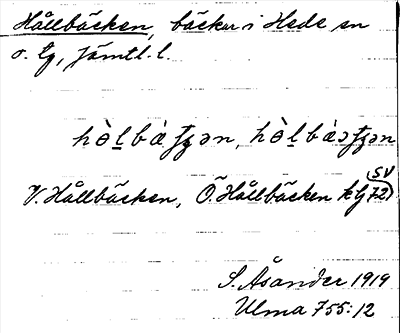 Hållbäcken, bäckar i Hede sn
o. tg, Jämtl. l.
hòl̲bàʈʂən, hòl̲bàəʈʂən
V. Hållbäcken, Ö. Hållbäcken kbl 72
SV
S. Åsander 1919
Ulma 755:12